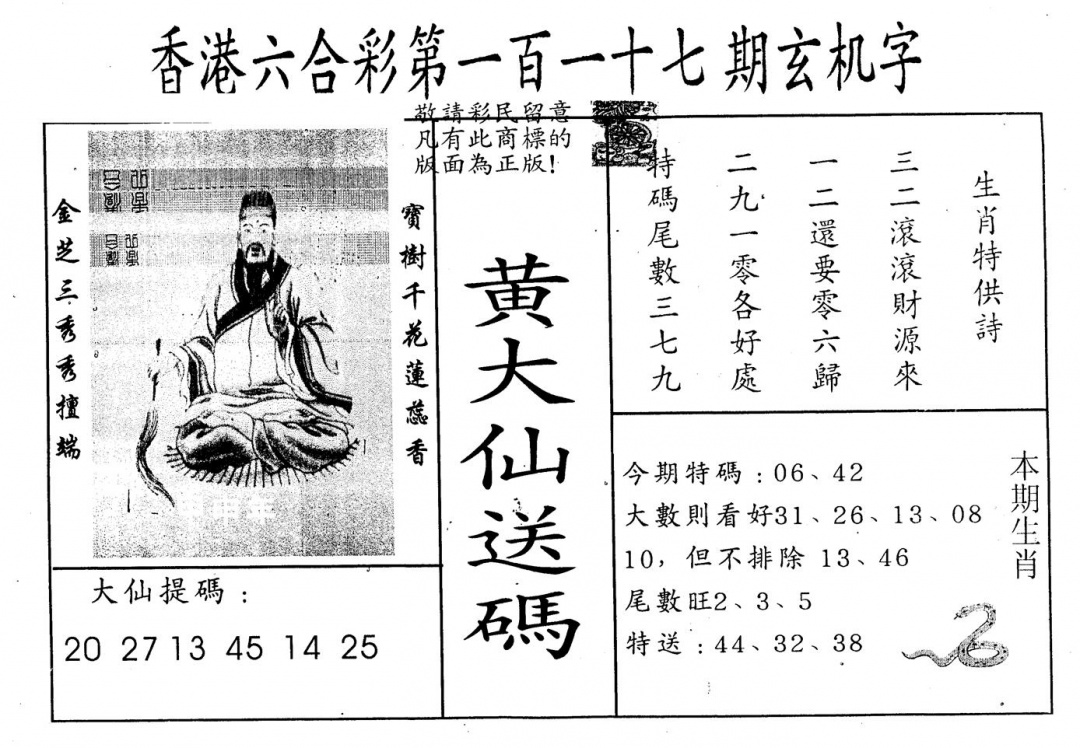 香港六合彩第一百一十七期玄机字
敬請彩民留意
凡有此商標的
版面為正版!
金芝三秀秀擅端
寶樹千花蓮蕊香
大仙提碼：
20 27 13 45 14 25
黄大仙送碼
生肖特供詩
三二滾滾財源來
一二還要零六歸
二九一零各好處
特碼尾數三七九
今期特碼：06、42
大數則看好31、26、13、08
10，但不排除 13、46
尾數旺2、3、5
特送：44、32、38
本期生肖